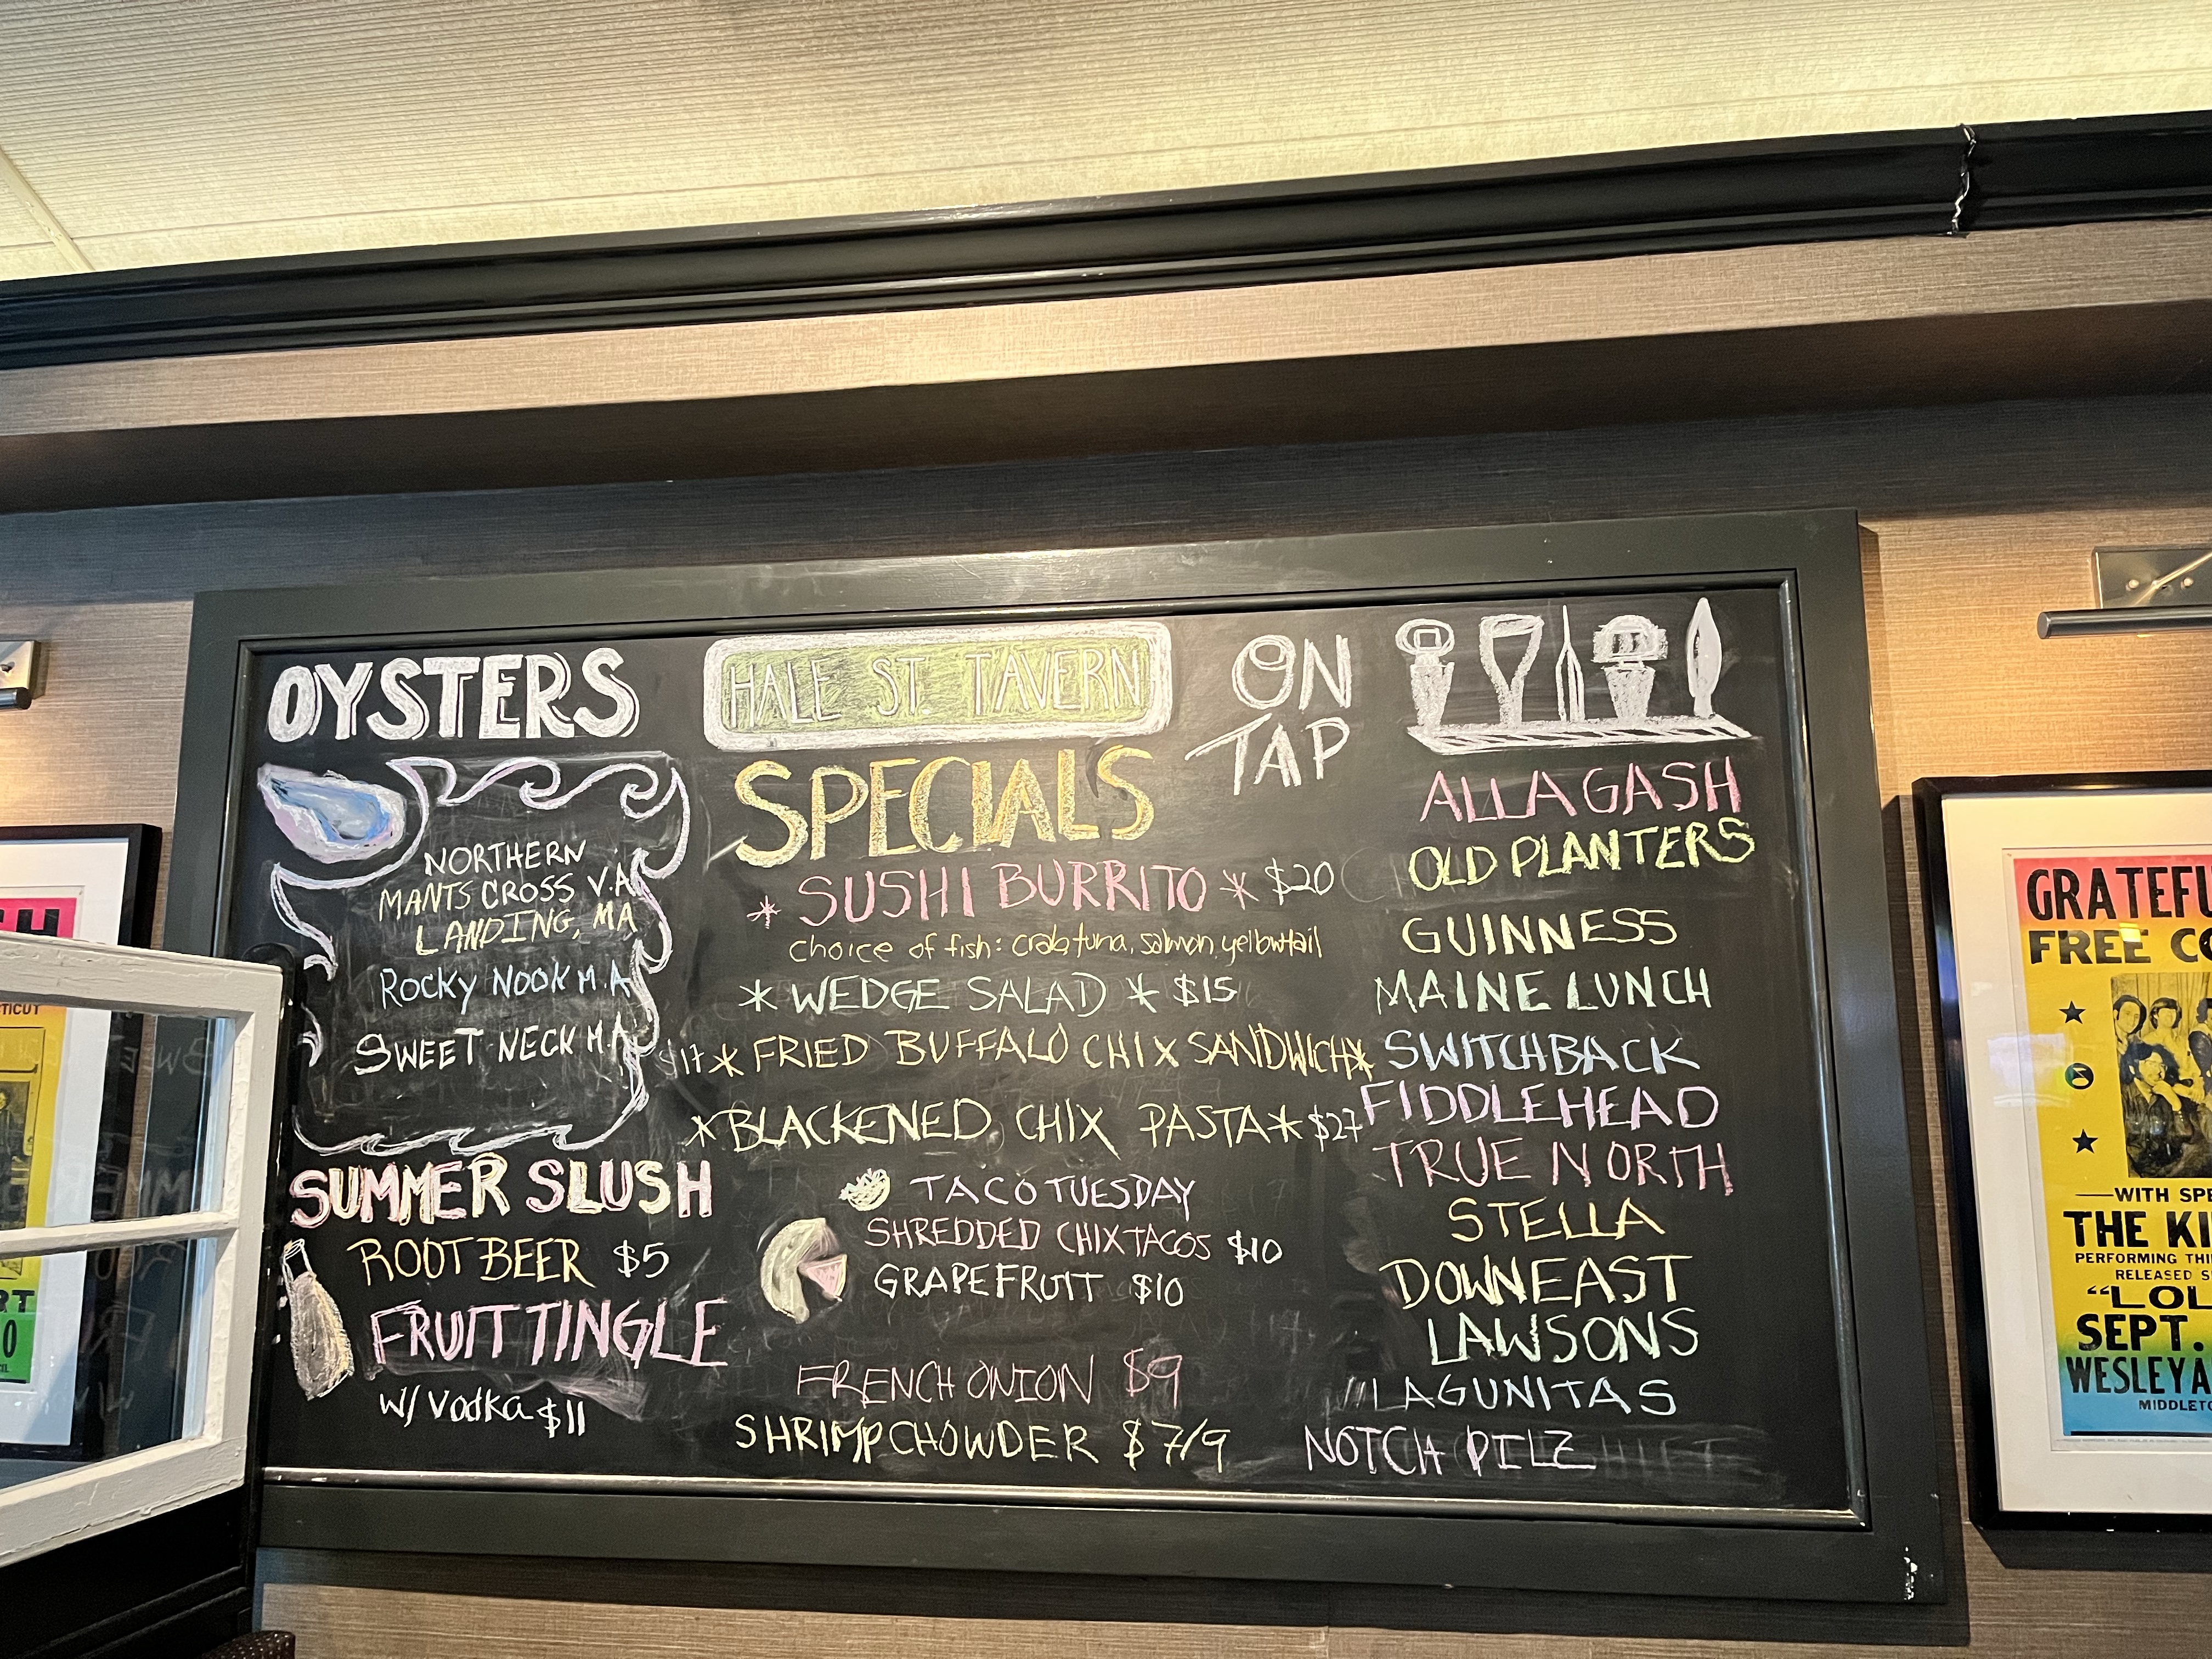 OYSTERS
NORTHERN
MANTS CROSS V.A
LANDING, MA
ROCKY NOOK M.A
SWEET NECK M.A
SUMMER SLUSH
ROOT BEER $5
FRUIT TINGLE
w/ vodka $11
HALE ST. TAVERN
SPECIALS
* SUSHI BURRITO * $20
choice of fish: crab, tuna, salmon, yellowtail
* WEDGE SALAD * $15
$17 * FRIED BUFFALO CHIX SANDWICH *
* BLACKENED CHIX PASTA * $27
TACO TUESDAY
SHREDDED CHIX TACOS $10
GRAPEFRUIT $10
FRENCH ONION $9
SHRIMP CHOWDER $7/9
ON
TAP
ALLAGASH
OLD PLANTERS
GUINNESS
MAINE LUNCH
SWITCHBACK
FIDDLEHEAD
TRUE NORTH
STELLA
DOWNEAST
LAWSONS
LAGUNITAS
NOTCH PILZ
GRATEFU
FREE CO
WITH SPE
THE KI
PERFORMING THI
RELEASED S
"LOL
SEPT.
WESLEYA
MIDDLETO
H
TICUT
RT
0